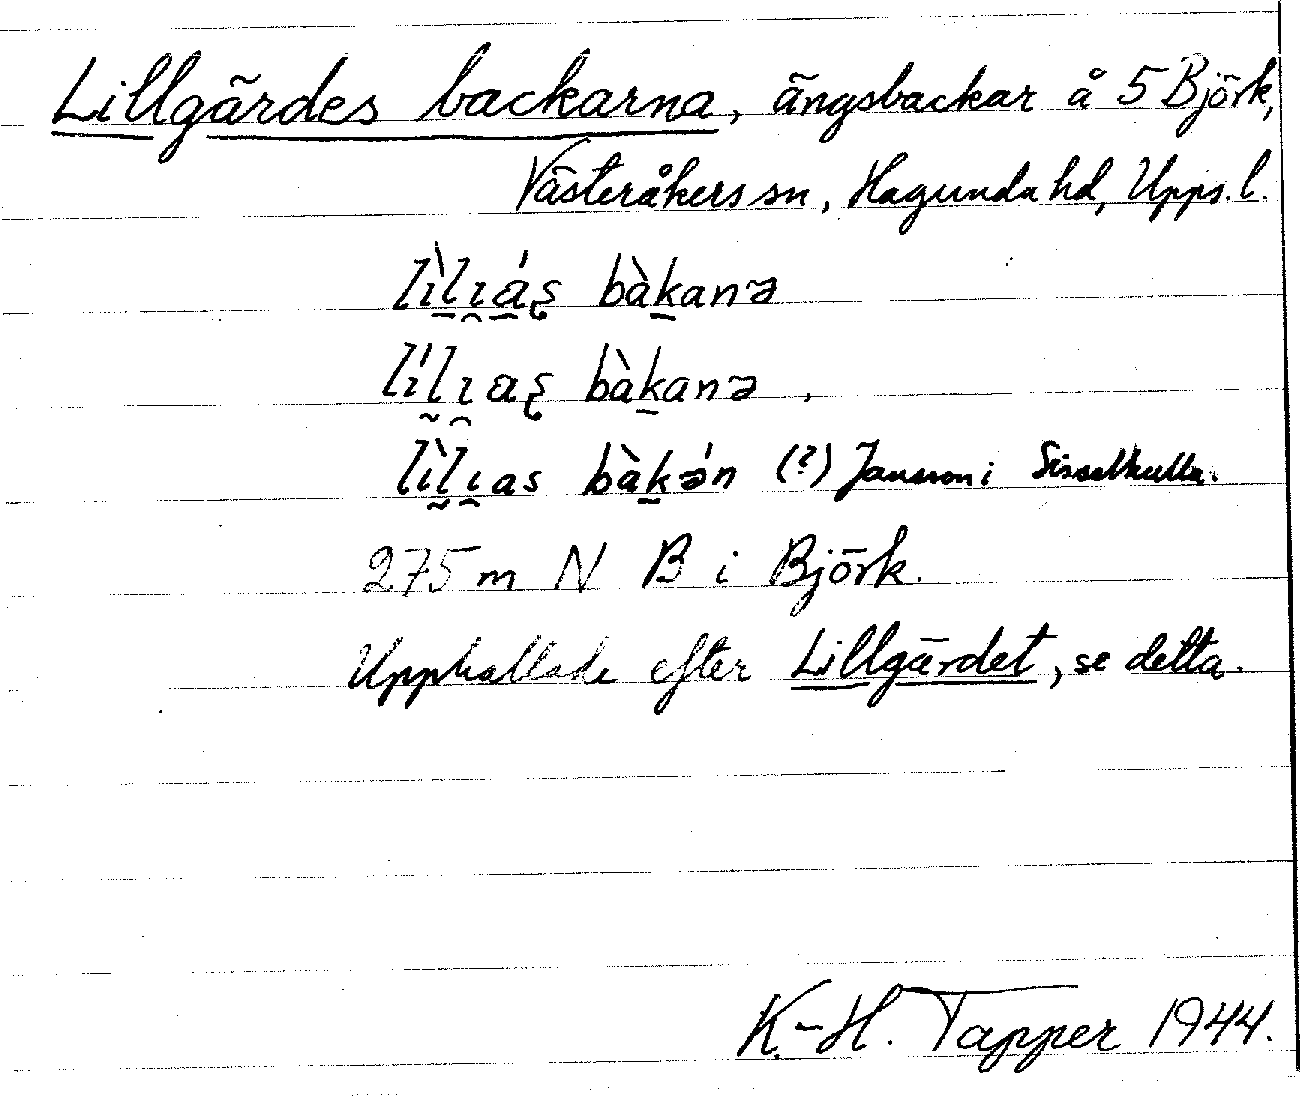 Lillgärdes backarna, ängsbackar å 5 Björk,
Västeråkers sn, Hagunda hd, Upps. l.
lìlı̯áʂ bàkanə
lílı̯aʂ bàkanə.
lìlı̯as bàkə́n (?) Jansson i Sisselkulla.
275 m N B i Björk.
Uppkallade efter Lillgärdet, se detta.
K.-H. Tapper 1944.